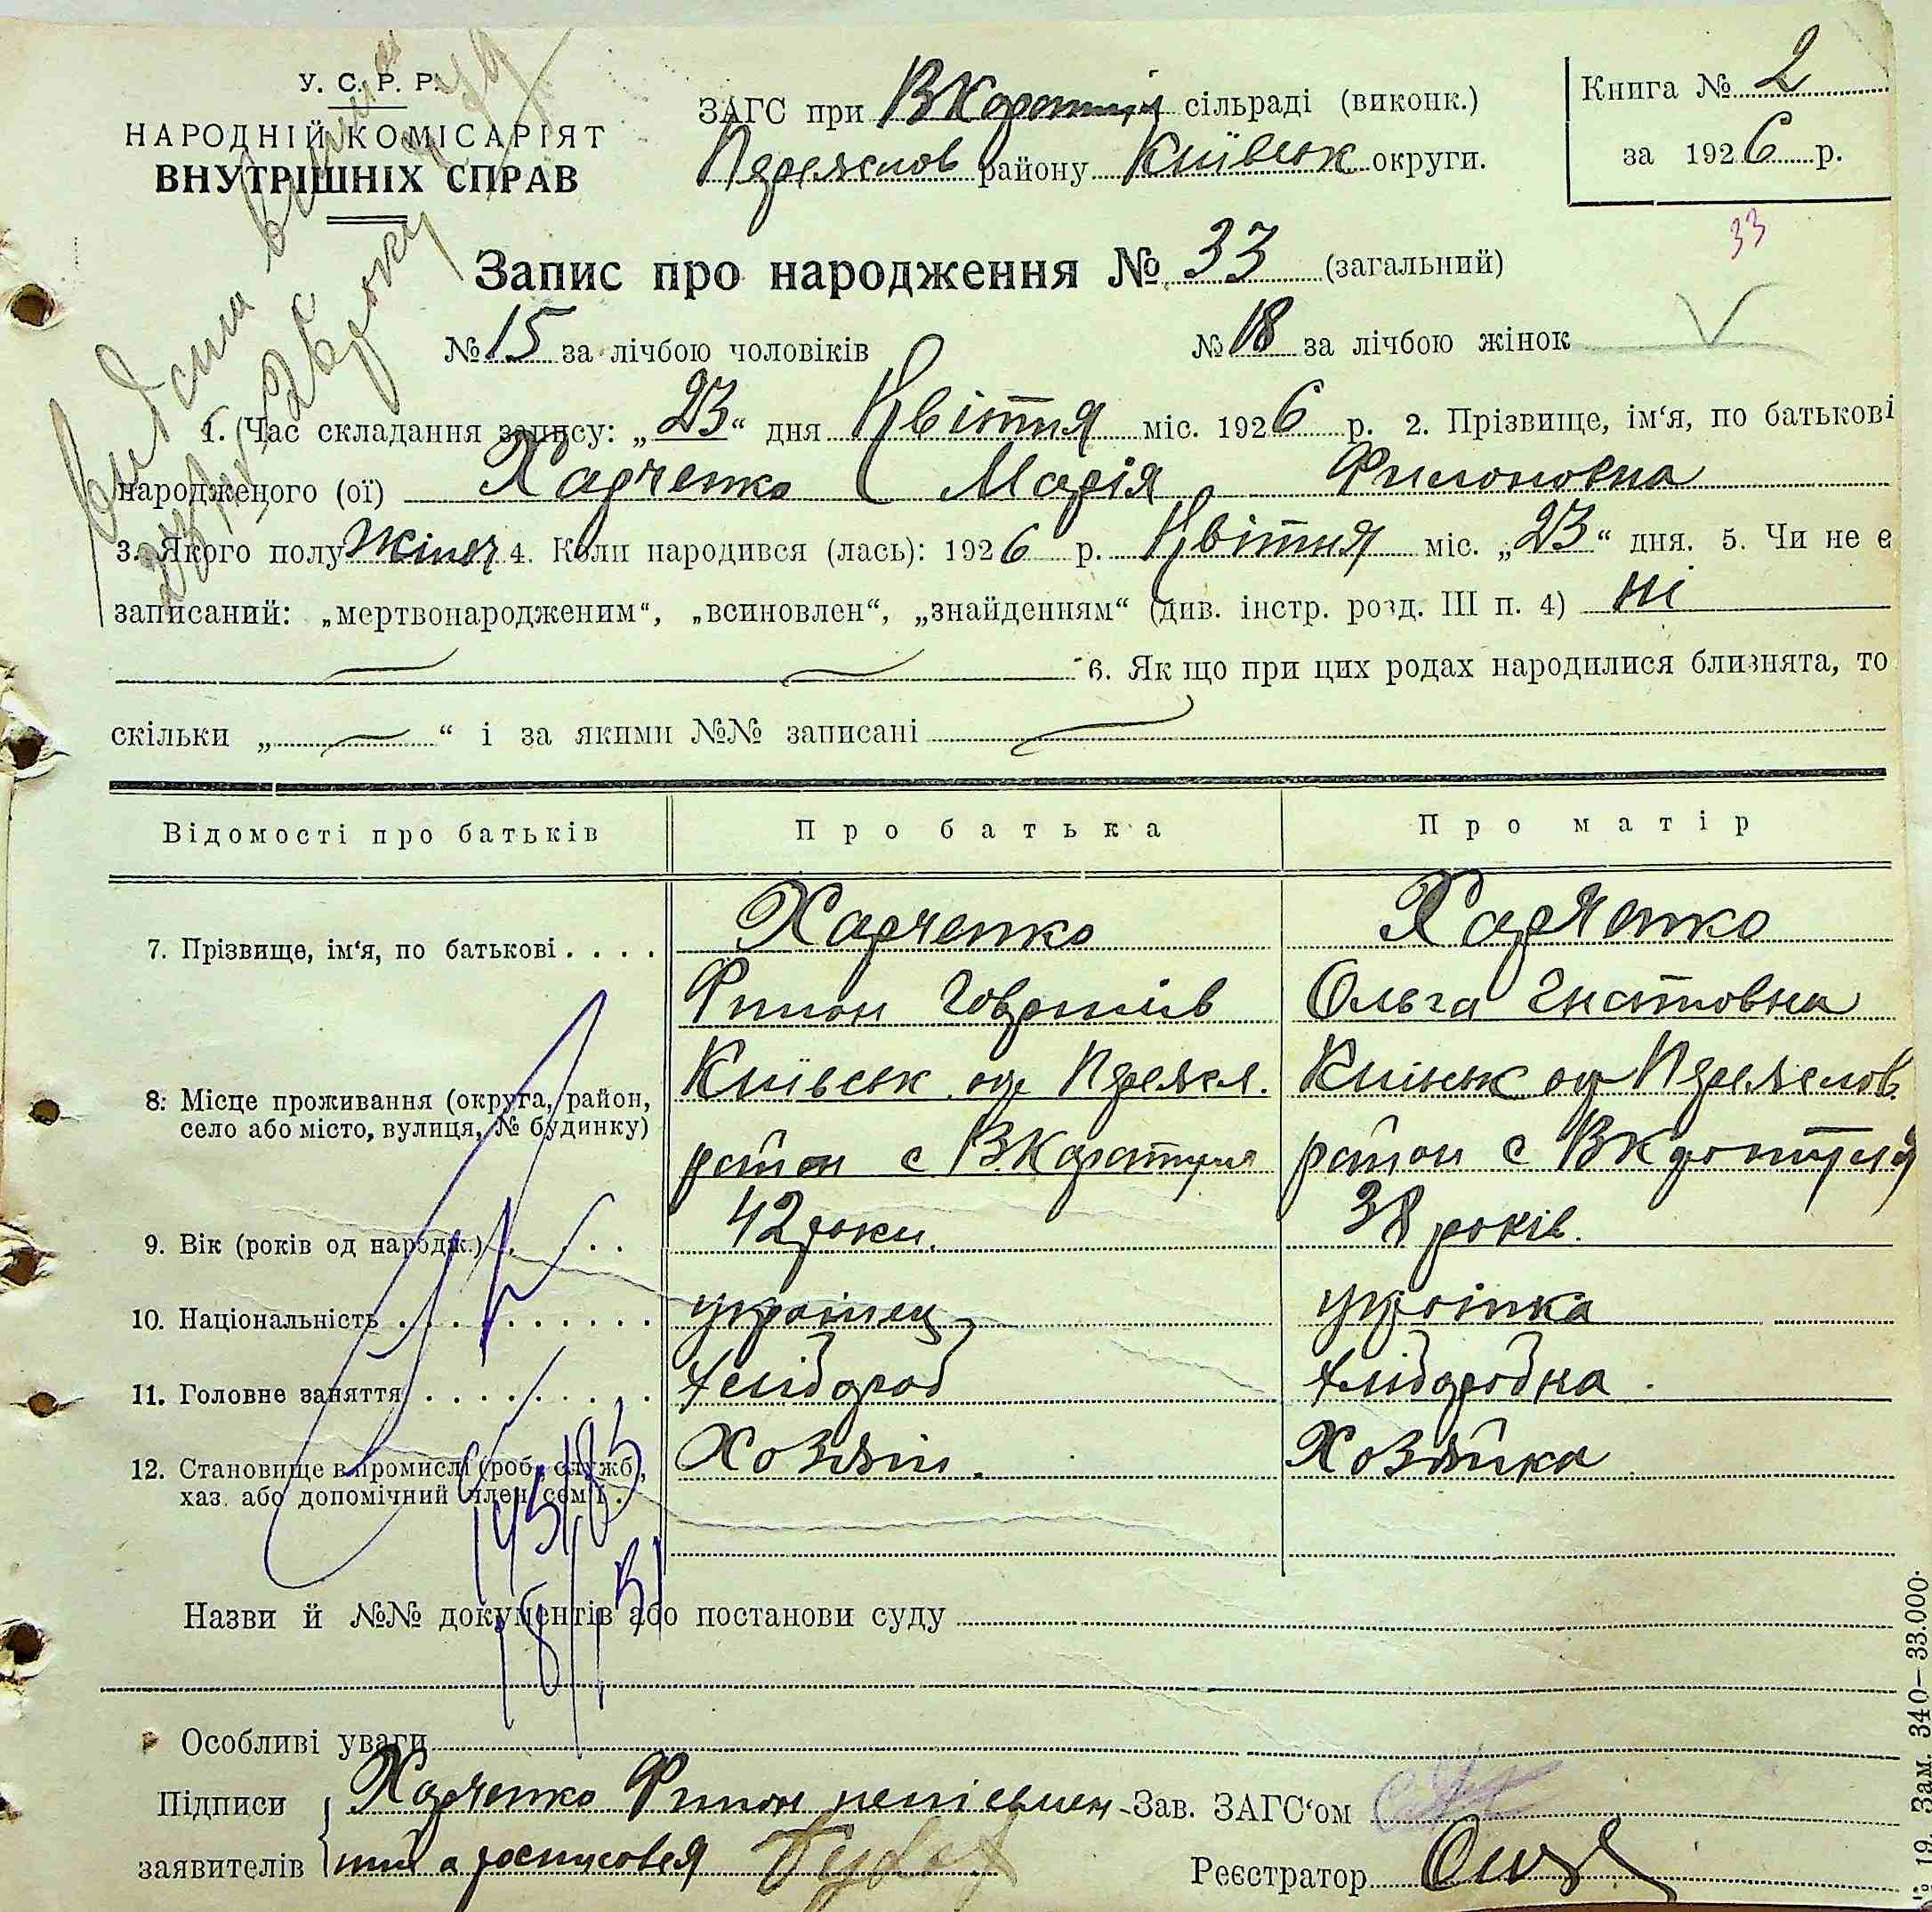 У. С. Р. Р.
НАРОДНІЙ КОМІСАРІЯТ
ВНУТРІШНІХ СПРАВ
ЗАГС при В Каратул сільраді (виконк.)
Переяслов району Київськ округи.
Книга № 2
за 1926 р.
33
Запис про народження № 33 (загальний)
№ 15 за лічбою чоловіків № 18 за лічбою жінок
1. Час складання запису: „23“ дня Квітня міс. 1926 р. 2. Прізвище, ім‘я, по батькові
народженого (ої) Харченко Марія Филоновна
3. Якого полу жіноч 4. Коли народився (лась): 1926 р. Квітня міс. „23“ дня. 5. Чи не є
записаний: „мертвонародженим“, „всиновлен“, „знайденням“ (див. інстр. розд. III п. 4) ні
6. Як що при цих родах народилися близнята, то
скільки „ — “ і за якими №№ записані —
Відомості про батьків Про батька Про матір
7. Прізвище, ім‘я, по батькові . . . . Харченко Харченко
Филон Гаврилів Ольга Гнатовна
8. Місце проживання (округа, район, Київськ ок Переясл. Київськ ок Переяслов.
село або місто, вулиця, № будинку) район с В Каратуля район с В Каратуля
9. Вік (років од народж.) . . . . 42 роки. 38 років.
10. Національність . . . . . . . . . . українец українка
11. Головне заняття . . . . . . . . . хлібороб хліборобка.
12. Становище в промислі (роб., служб., Хозяїн. Хозяйка
хаз. або допомічний член сем‘ї .
Назви й №№ документів або постанови суду
Особливі уваги
Підписи Харченко Филон неписьмен- Зав. ЗАГС‘ом
заявителів ний а росписовся Реєстратор
19. Зам. 340—33.000.